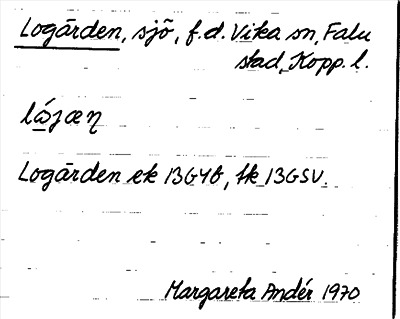 Logården, sjö, f.d. Vika sn, Falu
stad, Kopp. l.
Logården ek 13G4b, tk 13GSV.
Margareta Andér 1970